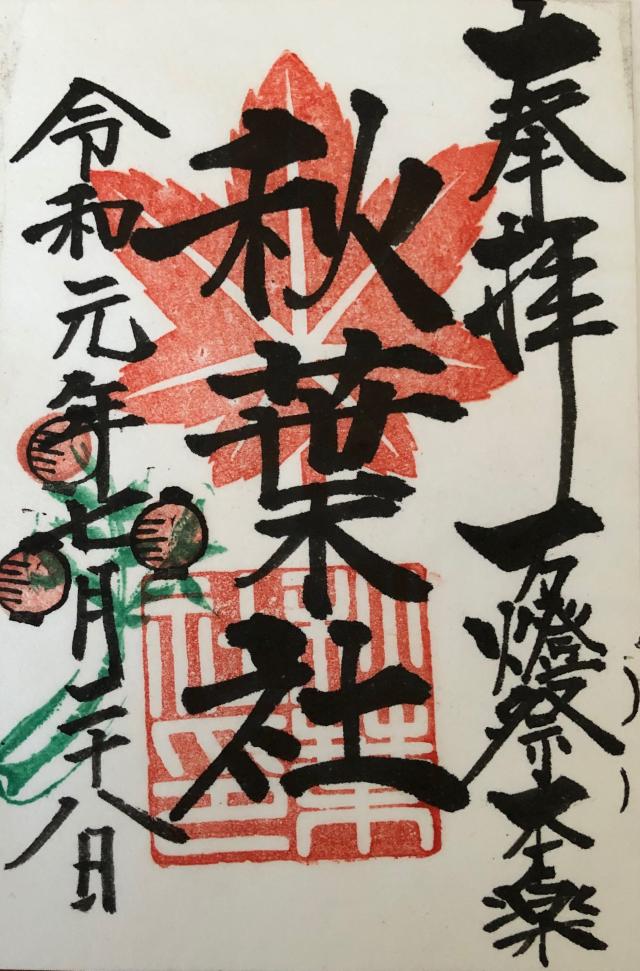 奉拝 万燈祭本楽
秋葉社
令和元年七月二十八日
秋葉社印